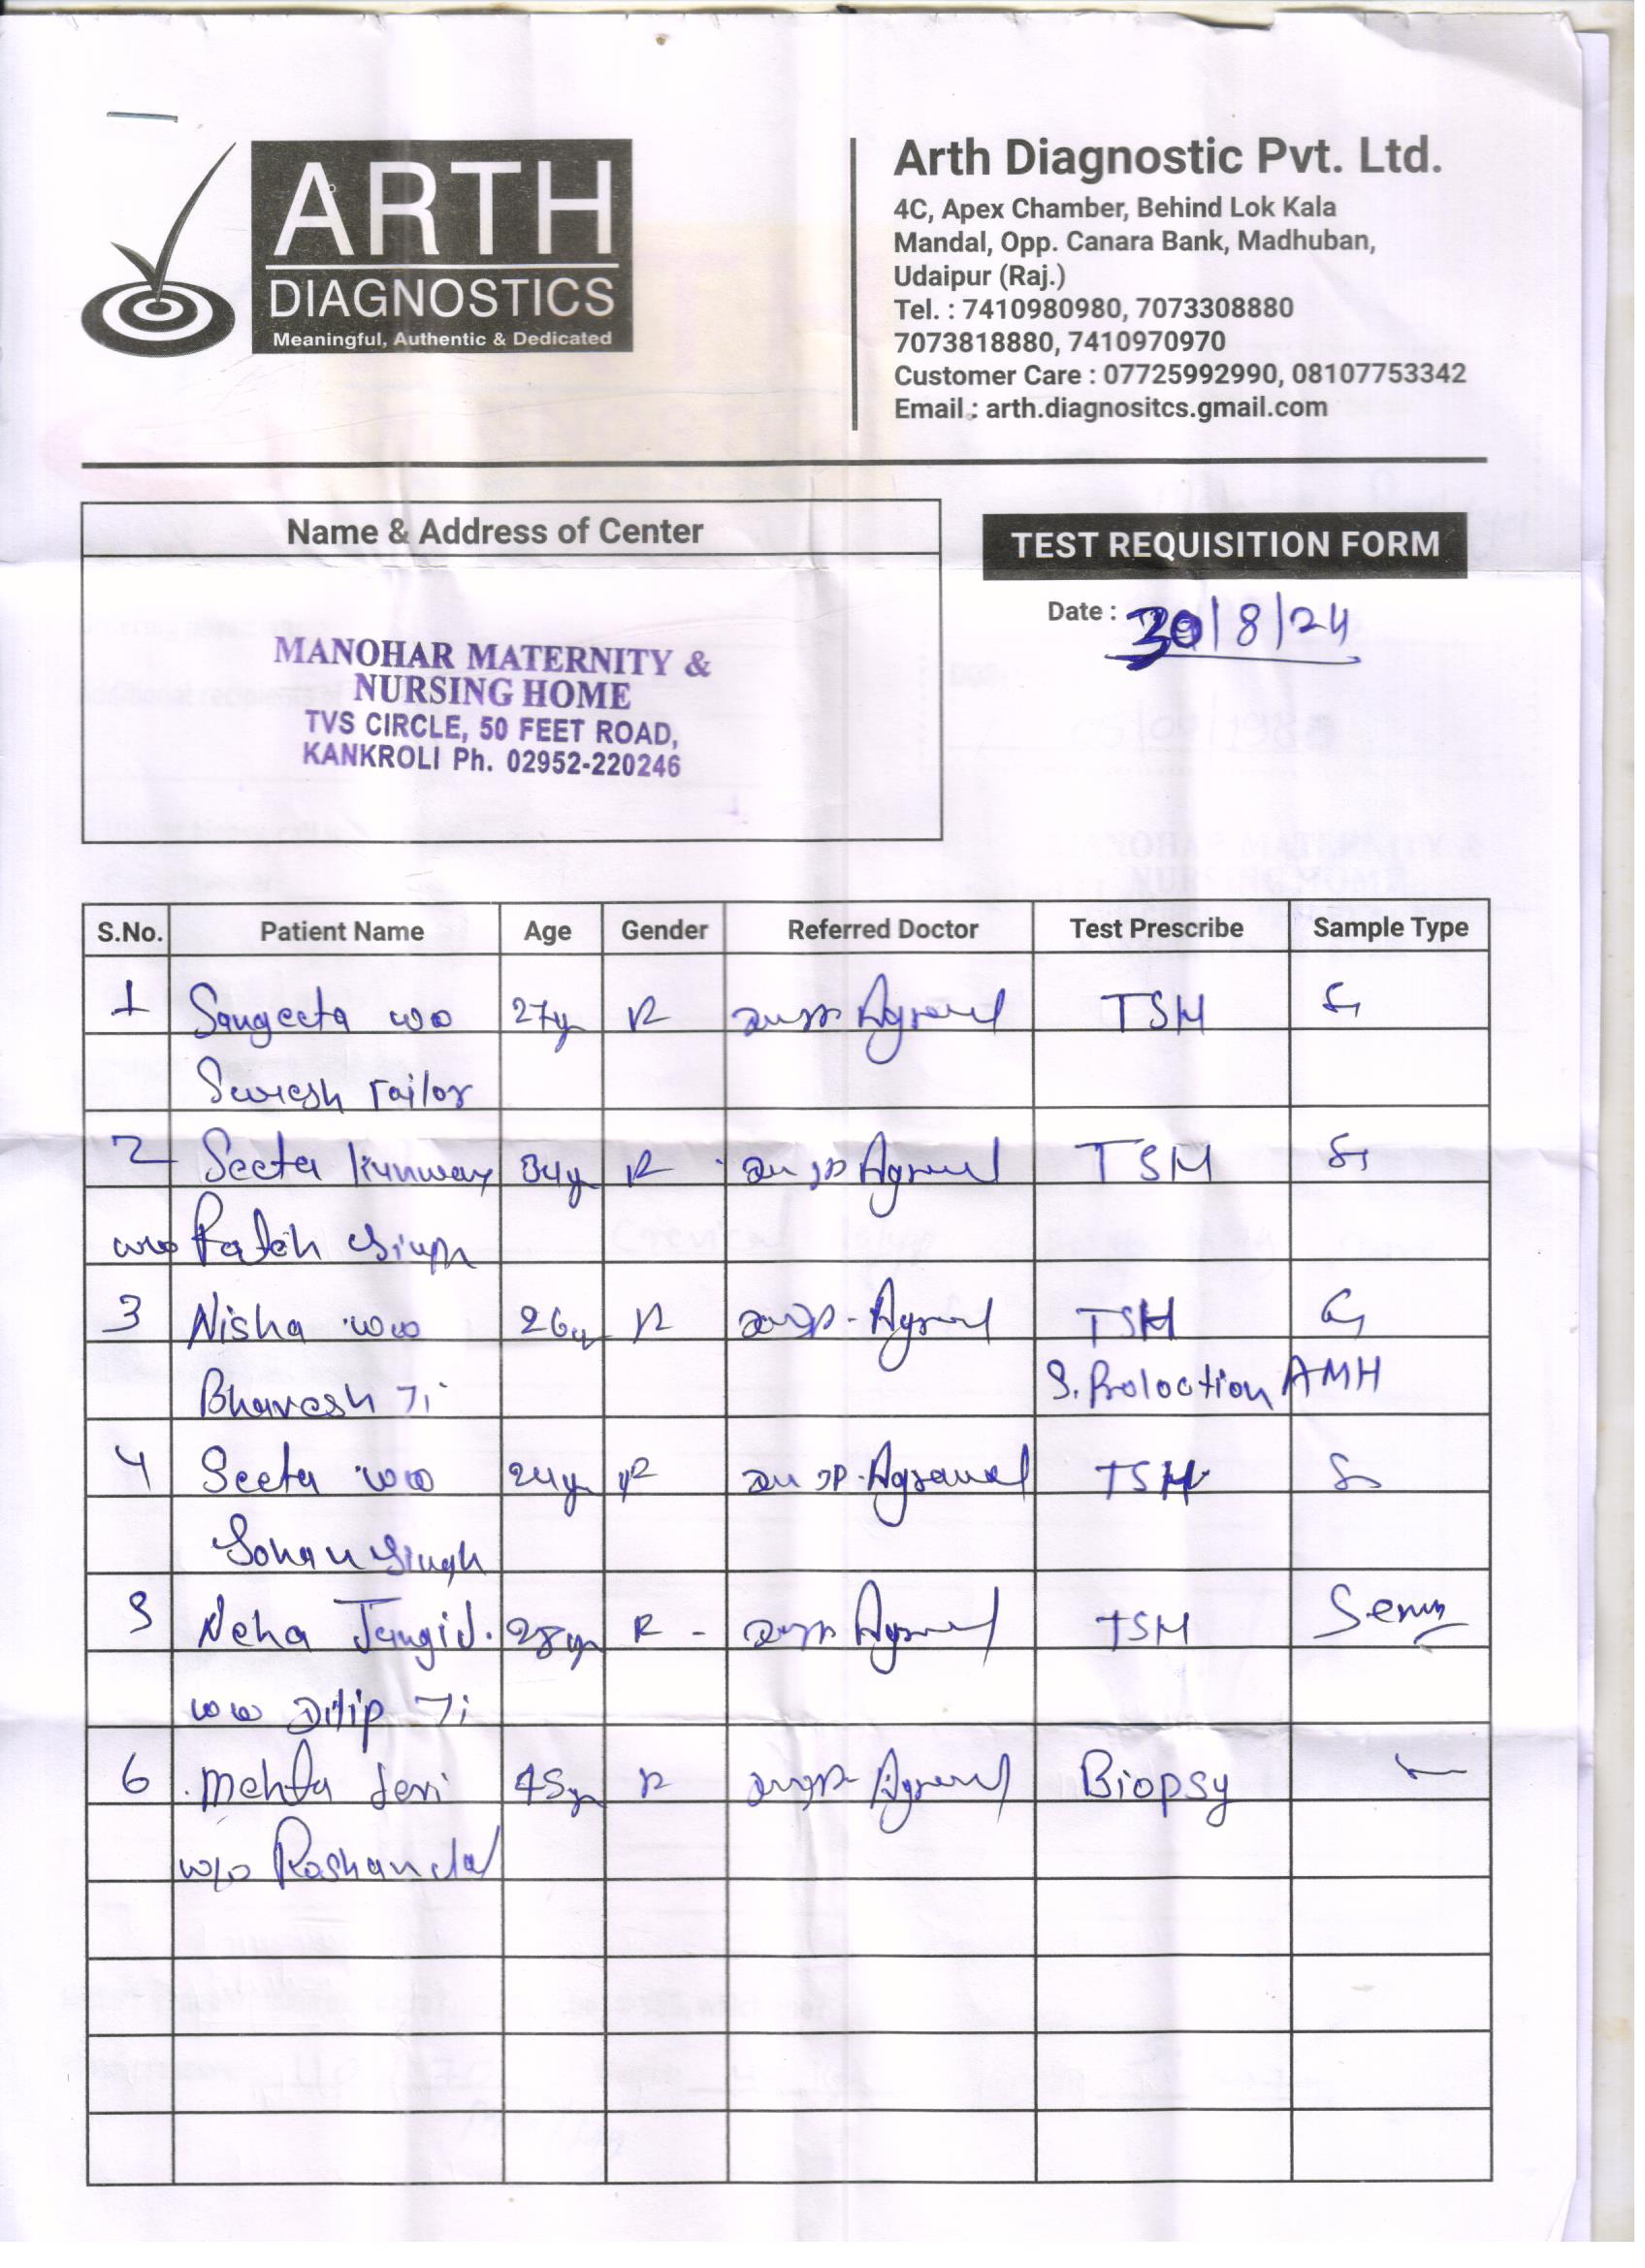 ARTH
DIAGNOSTICS
Meaningful, Authentic & Dedicated
Arth Diagnostic Pvt. Ltd.
4C, Apex Chamber, Behind Lok Kala
Mandal, Opp. Canara Bank, Madhuban,
Udaipur (Raj.)
Tel. : 7410980980, 7073308880
7073818880, 7410970970
Customer Care : 07725992990, 08107753342
Email : arth.diagnositcs.gmail.com
Name & Address of Center
MANOHAR MATERNITY &
NURSING HOME
TVS CIRCLE, 50 FEET ROAD,
KANKROLI Ph. 02952-220246
TEST REQUISITION FORM
Date : 30/8/24
S.No. Patient Name Age Gender Referred Doctor Test Prescribe Sample Type
1 Sangeeta w/o 27y Agrawal TSH
Suresh Tailor
2 Seeta Kunwar 34y Agrawal TSH
w/o Fateh Singh
3 Nisha w/o 26y Agrawal TSH
Bhavesh Ji S. Prolaction AMH
4 Seeta w/o 24y Agrawal TSH
Sohan Singh
5 Neha Jangid. 28y Agrawal TSH Serum
w/o Dilip Ji
6 Mehta Devi 45y Agrawal Biopsy
w/o Roshanlal